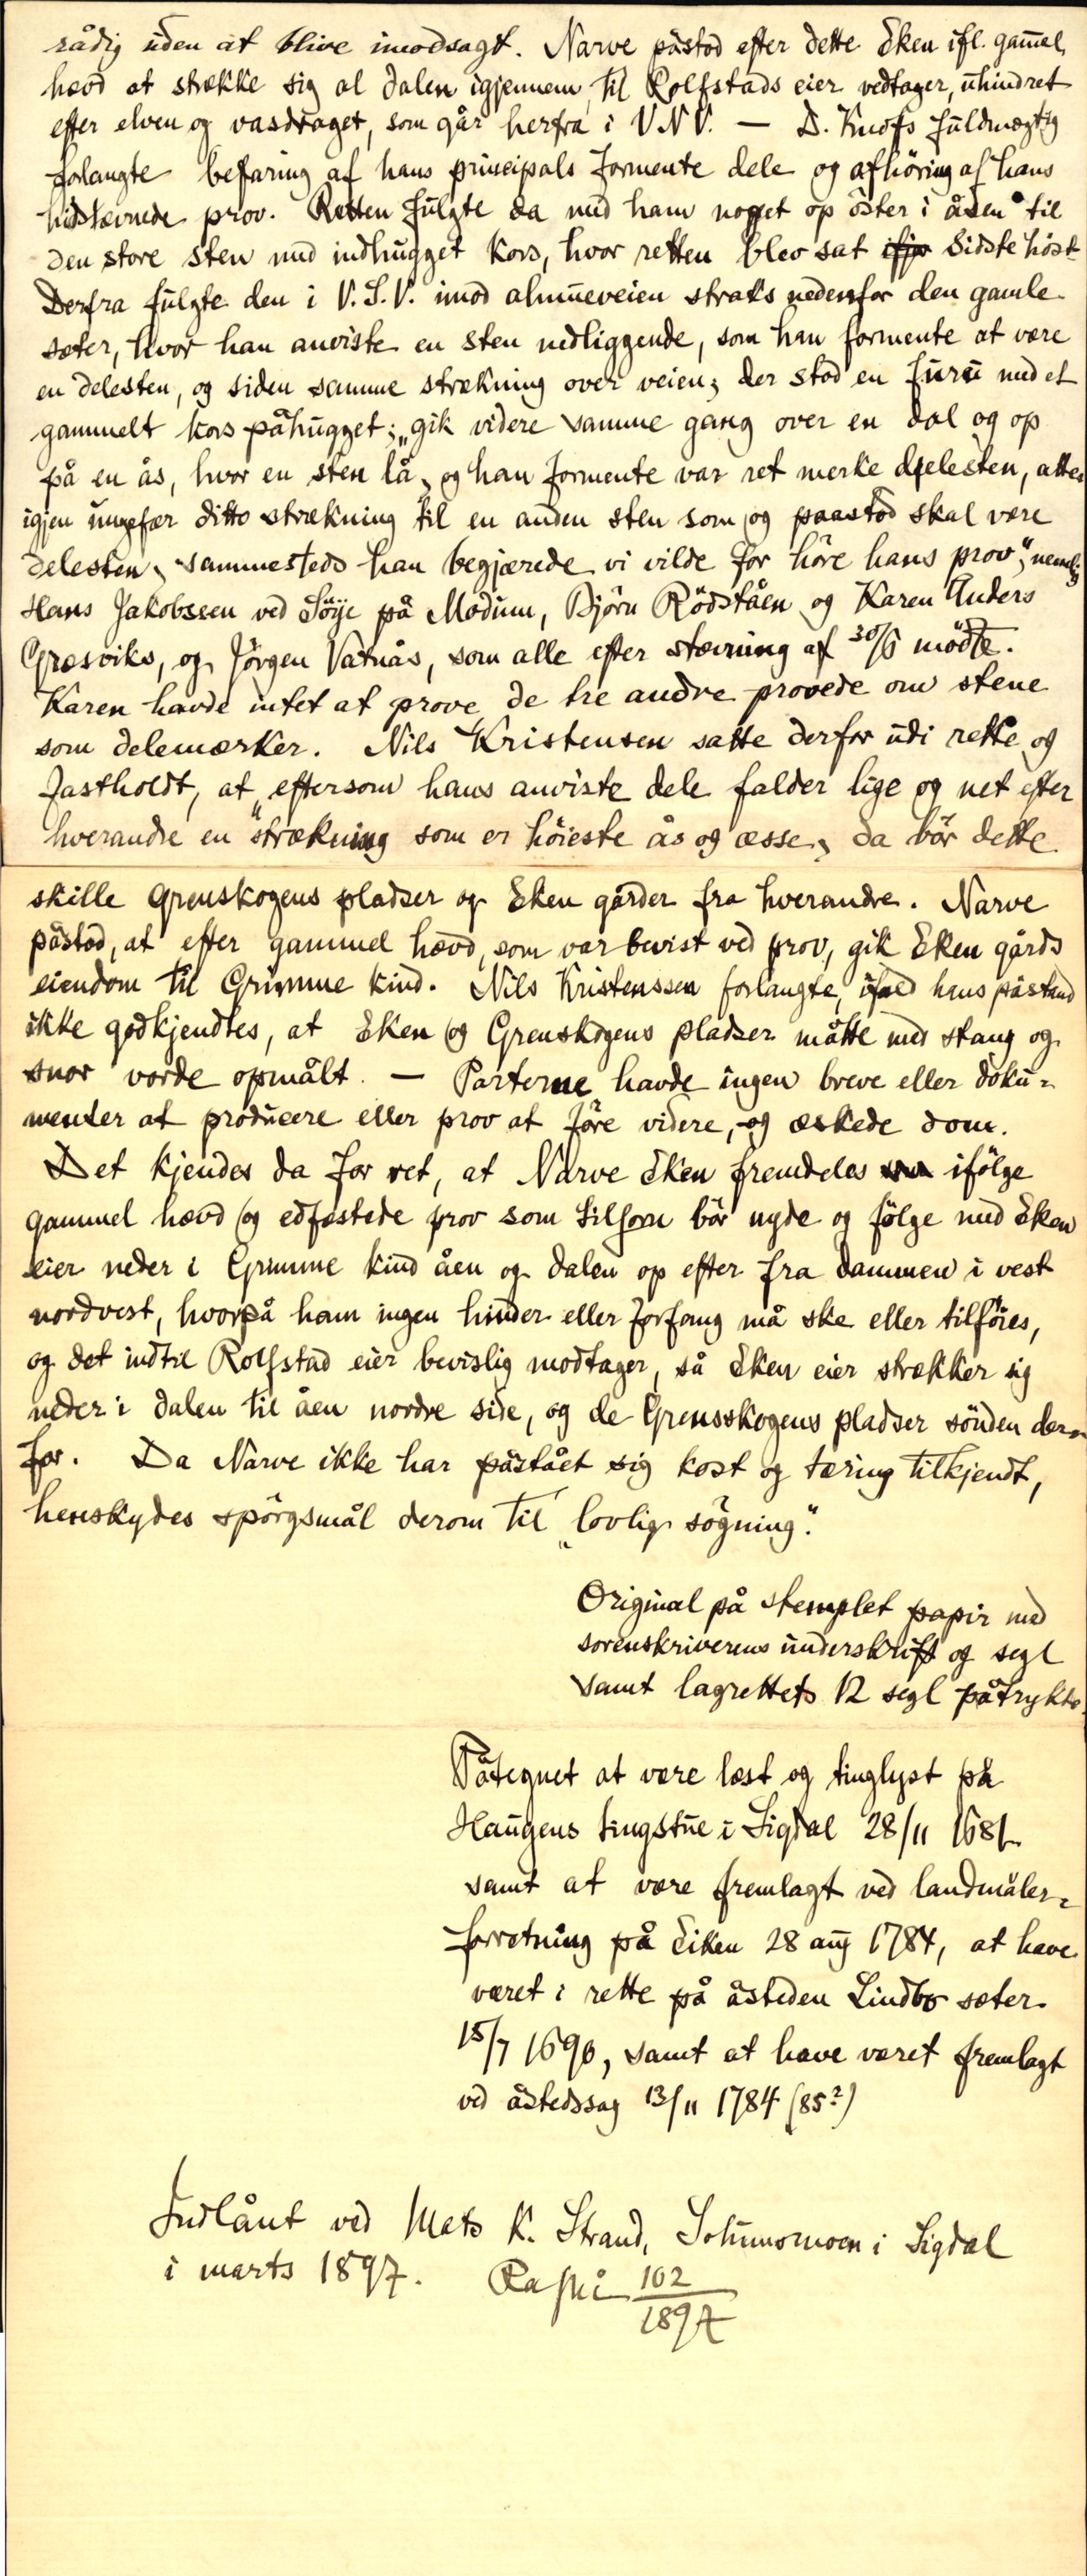 rådig uden at blive imodsagt. Narve påstod efter dette Eken ifl. gam̅el
hævd at strække sig al dalen igjennem, til Rolfstads eier vedtager, uhindret
efter elven og vasdraget, som går herfra i V N V. — D. Knofs fuldmægtig
forlangte befaring af hans principals formente dele og afhöring af hans
hidstævnede prov. Retten fulgte da med ham noget op öster i åsen til
den store sten med indhugget kors, hvor retten blev sat ifjor sidste höst.
Derfra fulgte den i V.S.V. imod almueveien straks nedenfor den gamle
sæter, hvor han anviste en sten nedliggende, som han formente at være
en delesten, og siden samme strækning over veien; der stod en furu med et
gammelt kors påhugget; „gik videre samme gang over en dal og op
på en ås, hvor en sten lå, og han formente var ret merke delesten, atter
igjen ungefær ditto strækning til en anden sten som og paastod skal være
delesten, sammesteds han begjærede vi vilde for höre hans prov", nemlig
Hans Jakobssen ved Söije på Modum, Björn Rödståen og Karen Anders
Græsviks, og Jörgen Vatnås, som alle efter stævning af 30/6 mödte.
Karen havde intet at prove, de tre andre provede om stene
som delemærker. Nils Kristensen satte derfor udi rette og
fastholdt, at „eftersom hans anviste dele falder lige og net efter
hverandre en strækning" som er höieste ås og æsse, da bör dette
skille Grenskogens pladser og Eken gårder fra hverandre. Narve
påstod, at efter gammel hævd, som var bevist ved prov, gik Eken gårds
eiendom til Grimme kind. Nils Kristenssen forlangte, ifald hans påstand
ikke godkjendtes, at Eken og Grenskogens pladser måtte med stang og
snor vorde opmålt. — Parterne havde ingen breve eller doku-
menter at producere eller prov at före videre, og æskede dom.
Det kjendes da for ret, at Narve Eken fremdeles ifölge
gammel hævd og edfæstede prov som tilforn bör nyde og fölge med Eken
eier neder i Grimme kind åen og dalen op efter fra dammen i vest
nordvest, hvorpå ham ingen hinder eller forfang må ske eller tilföres,
og det indtil Rolfstad eier bevislig modtager, så Eken eier strækker sig
neder i dalen til åen nordre side, og de Grensskogens pladser sönden der-
for. Da Narve ikke har påstået sig kost og tæring tilkjendt,
henskydes spörgsmål derom til „lovlig sögning".
Original på stemplet papir med
sorenskriverens underskrift og segl
samt lagrettets 12 segl påtrykte.
Påtegnet at være læst og tinglyst på
Haugens tingstue i Sigdal 28/11 1681
samt at være fremlagt ved landmåler-
forretning på Eiken 28 aug 1784, at have
været i rette på åsteden Lindbo sæter
15/7 1690, samt at have været fremlagt
ved åstedssag 13/11 1784 (85?)
Indlånt ved Mats K. Strand, Solumsmoen i Sigdal
i marts 1897. 102
1897